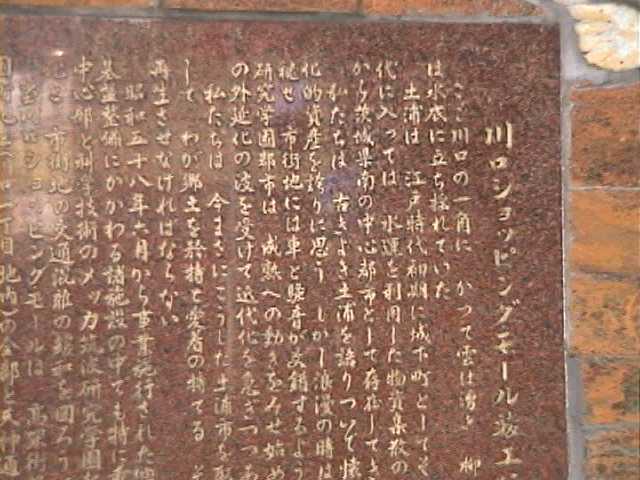 川口ショッピングモール竣工
ここ川口の一角に かつて雲は湧き 柳
は水底に立ち揺れていた
土浦は 江戸時代初期に城下町としてそ
代に入っては 水運を利用した物資集散の
から茨城県南の中心都市として存在してき
私たちは 古きよき土浦を語りついで懐
化的資産を誇りに思う しかし浪漫の時は
褪せ 市街地には車と騒音が交錯するよう
研究学園都市は 成熟への動きをみせ始め
の外延化の波を受けて近代化を急ぎつつあ
私たちは 今まさにこうした土浦市を取
して わが郷土を矜持と愛着の持てる そ
再生させなければならない
昭和五十八年六月から事業施行された
基盤整備にかかわる諸施設の中でも特に
中心部と科学技術のメッカ筑波研究学園
市街地の交通混雑の緩和を図ろう
ショッピングモールは 高架街